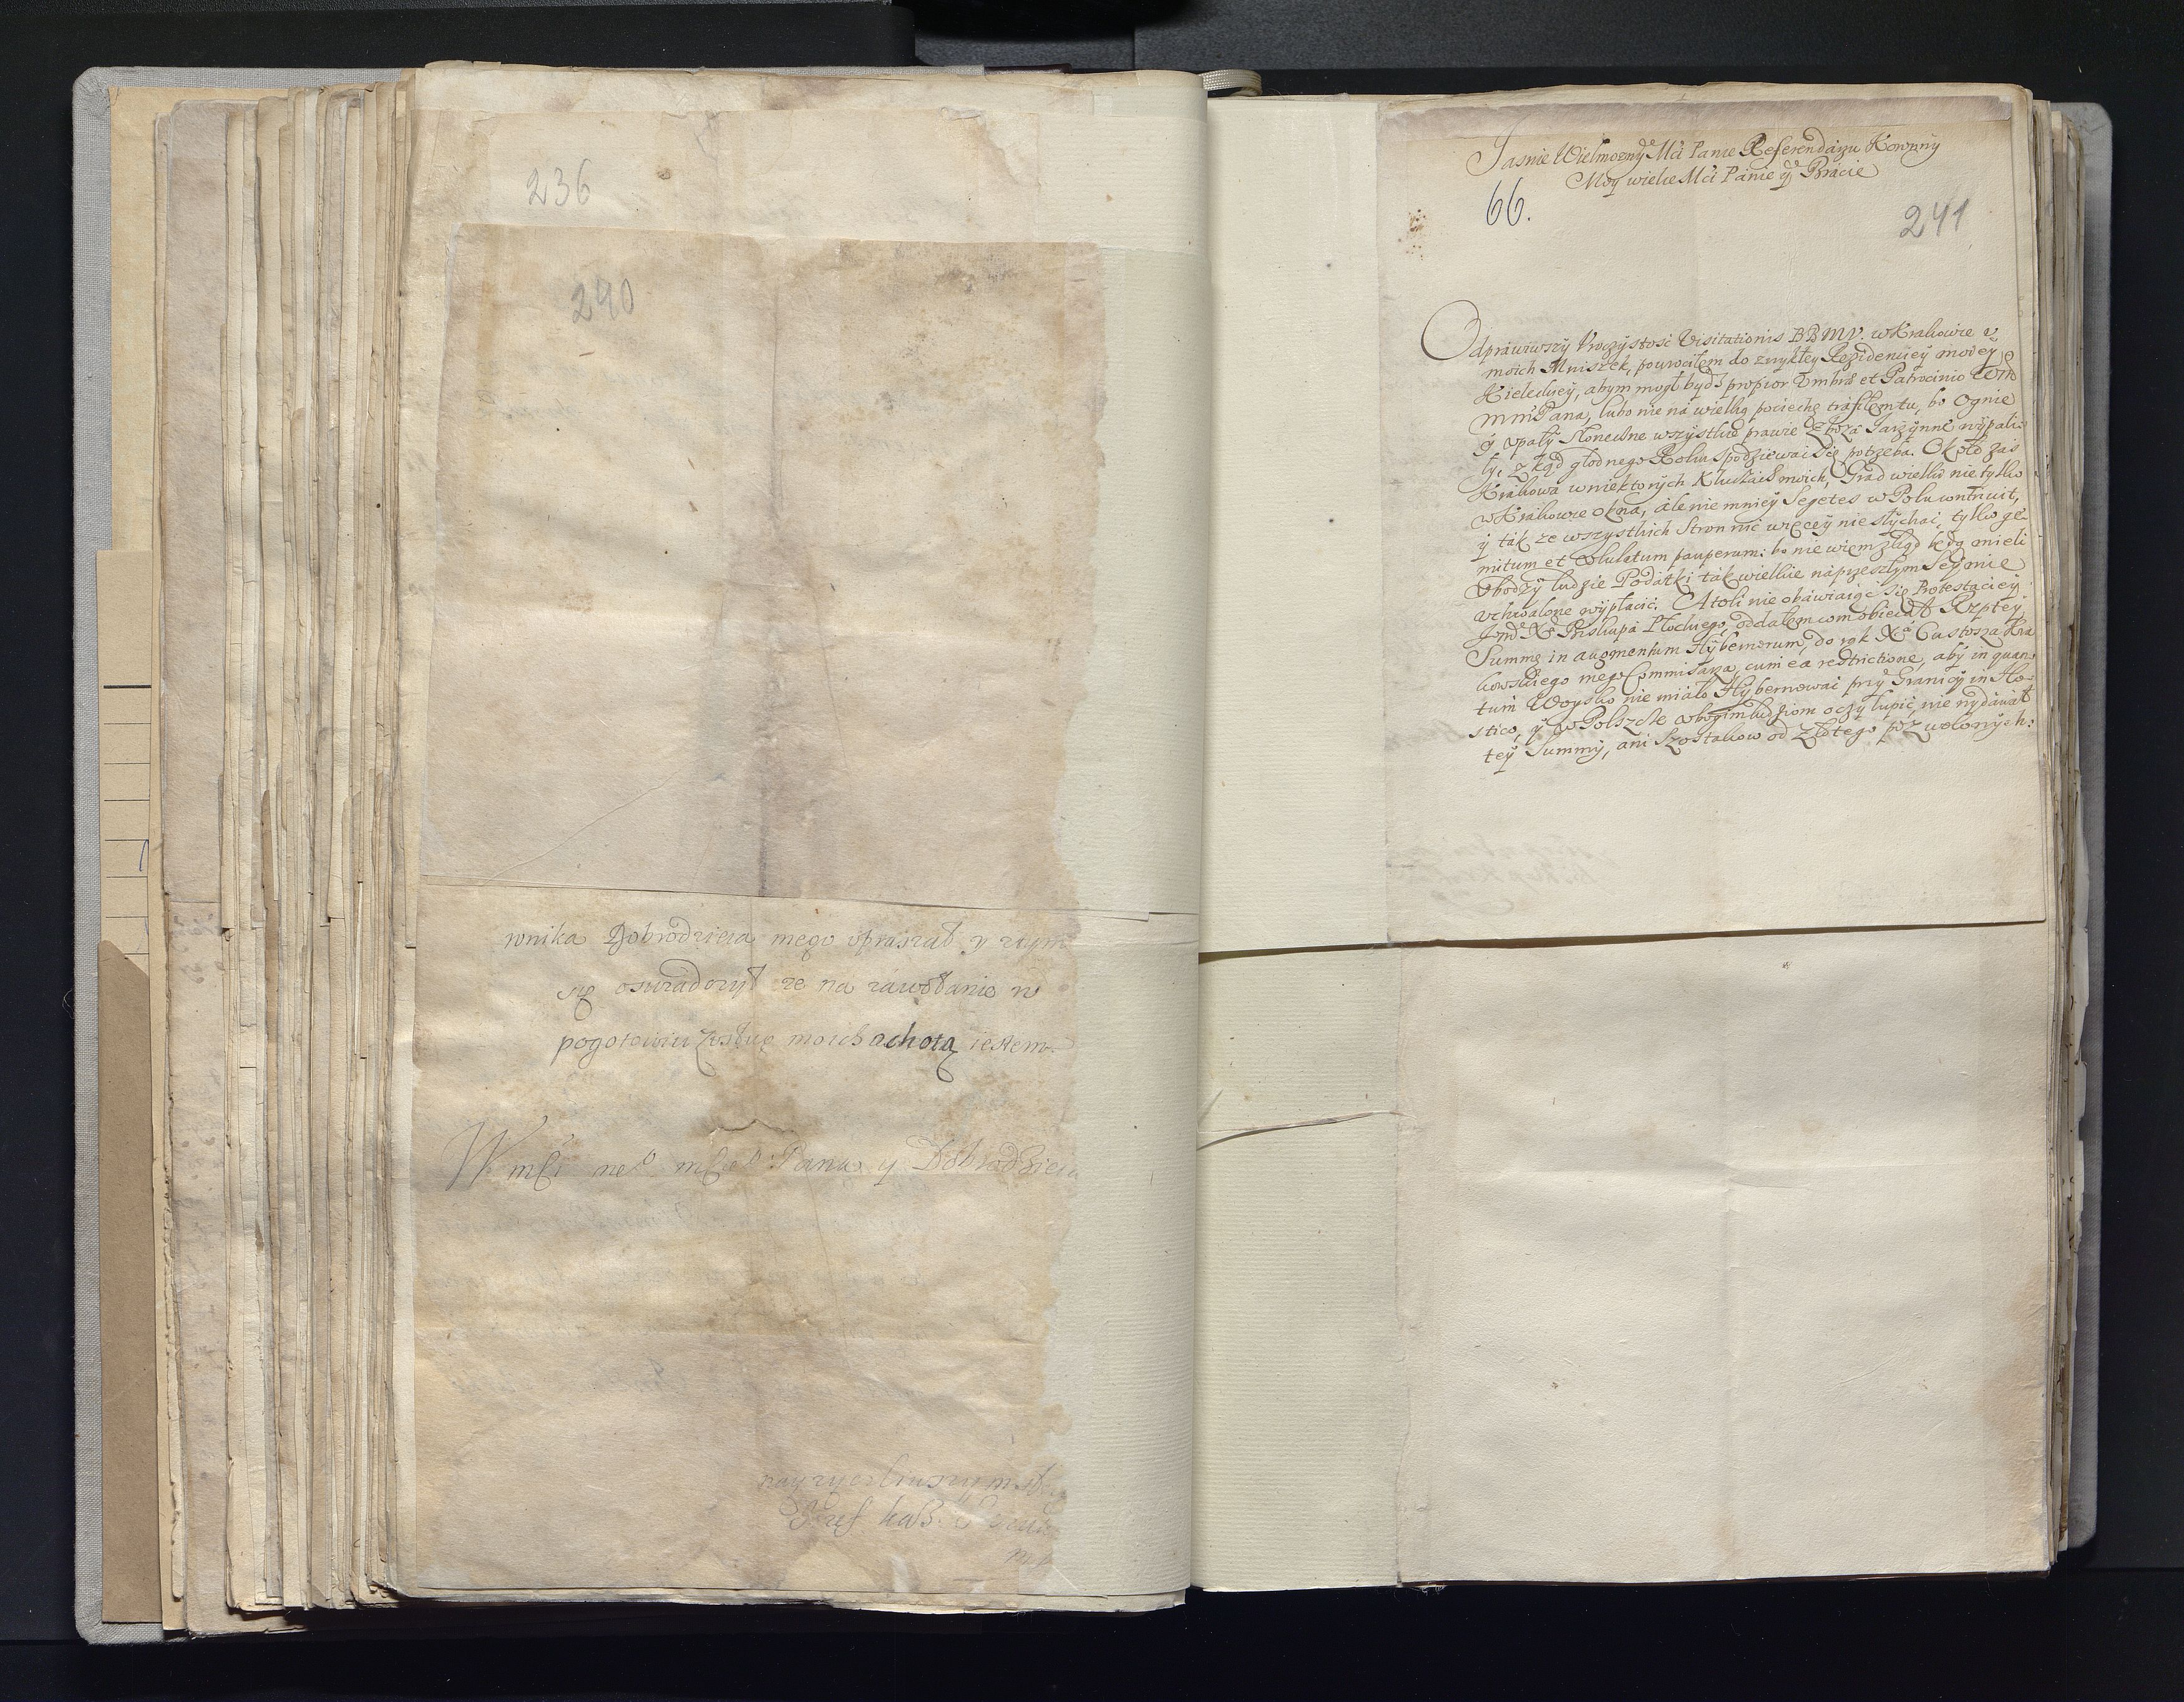 236
240
wnika Dobrodzieia mego upraszał y ztym
się oswiadczył ze na zawołanie w
pogotowiu zusług moich ochotą iestem
W mści me° mście° Pana y Dobrodzieia
Jasnie Wielmozny Mći Panie Referendarzu Koronny
Moy wielce Mći Panie y Bracie
66.
241
Odprawiwszy Uroczystość Visitationis BBMV. w Krakowie u
moich Mniszek, powrociłem do zwykłey Rezidencyey moiey
Kieleckiey, abym mogł bydź propior Umbra et Patrocinio WM
Mm Pana, lubo nie ná wielką pociechę tráfiłem tu, bo Ognie
y upały Słoneczne wszystkie prawie Zboza Jarzynne wypali-
ły, zkąd głodnego Roku spodziewać się potrzeba. Około zaś
Krákowá w niektorych Kluczách moich, Grad wielki nie tylko
w Krakowie okna, ále nie mniey Segetes w Polu contruit,
y ták ze wszystkich Stron nic więcey nie słychać, tylko ge-
mitum et Ululatum pauperum: bo nie wiem zkąd będą mieli
Ubodzy ludzie Podatki ták wielkie ná przeszłym Seymie
uchwalone wypłacić. Atoli nie obawiaiąc się Protestaciey
Jmć Xa Biskupá Płockiego, oddałem com obiecał Rzptey
Summę in augmentum Hybernorum, do rąk Xa Custosza Kra
kowskiego mego Commissarza, cum ea restrictione, aby in quan
tum Woysko nie miało Hybernować przy Granicy in Ho-
stico, y w Polszcze ubogim ludziom oczy łupić, nie wydawał
tey Summy, ani Szostakow od Złotego pozwolonych: